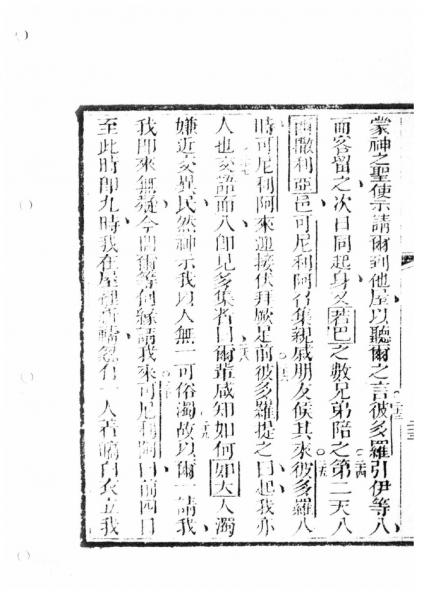 蒙神之聖使示請爾到他屋以聽爾之言彼多羅引伊等入
而客留之次日同起身又若巴之數兄弟陪之第二天入
西撒利亞邑可尼利阿召集親戚朋友候其來彼多羅入
時可尼利阿來迎接伏拜厥足前彼多羅提之曰起我亦
人也交語而入即見多集者曰爾輩咸知如何如大人濁
嫌近交異民然神示我以人無一可俗濁故以爾一請我
我即來無疑今問爾等何緣請我來可尼利阿曰前四日
至此時即九時我在屋裡祈禱忽有一人着皜白衣立我